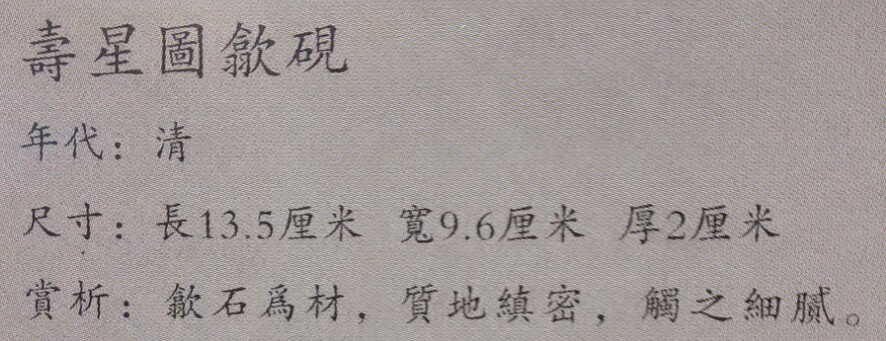 壽星圖歙硯
年代：清
尺寸：長13.5厘米 寬9.6厘米 厚2厘米
賞析：歙石爲材，質地縝密，觸之細膩。